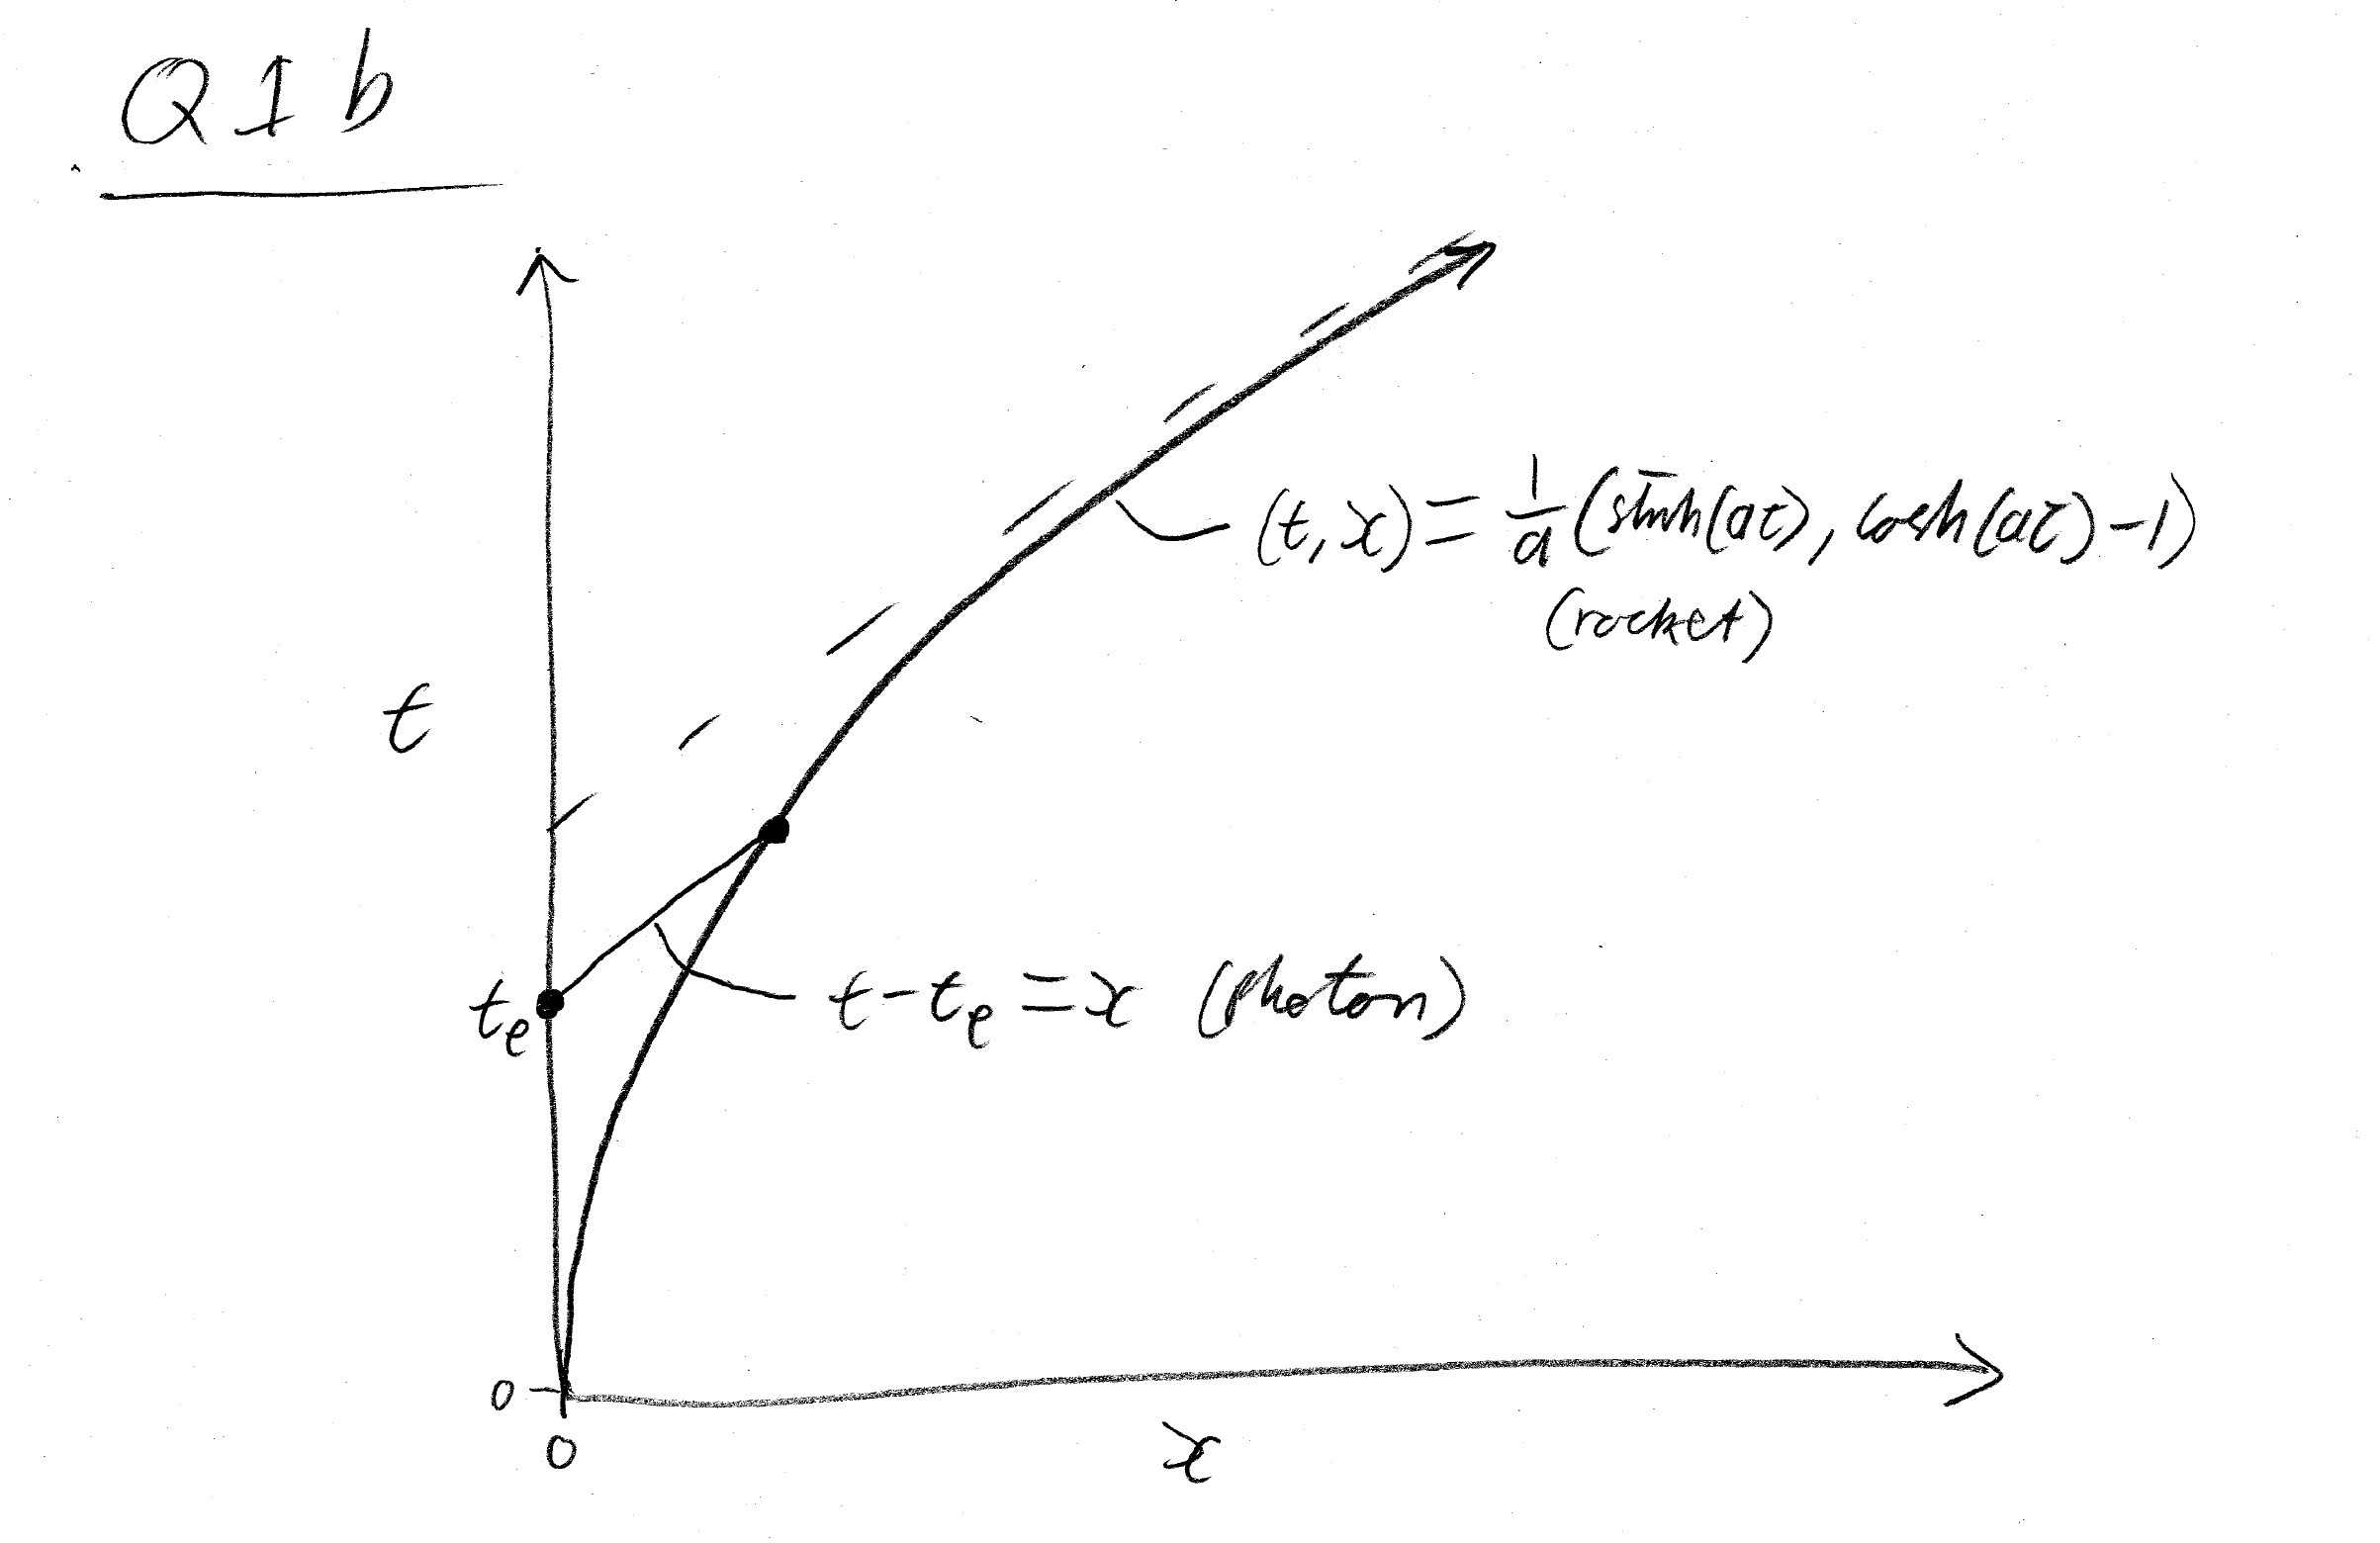 Q1b
(t, x) = 1/a (sinh(aτ), cosh(aτ) - 1)
(rocket)
t
t_e
t - t_e = x (photon)
0
0
x